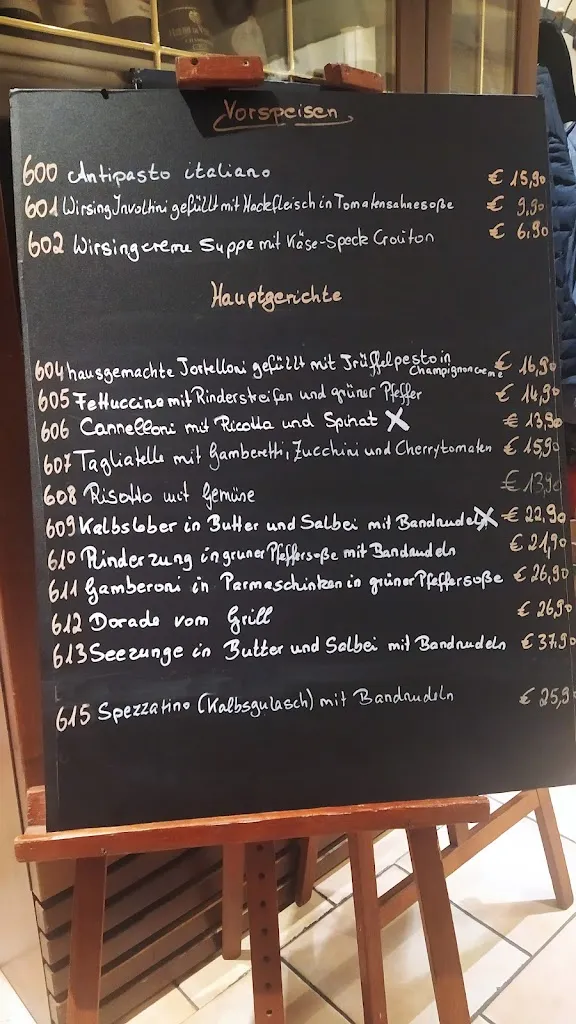 Vorspeisen
600 Antipasto italiano € 15,90
601 Wirsing Involtini gefüllt mit Hackfleisch in Tomatensahnesoße € 9,90
602 Wirsingcreme Suppe mit Käse-Speck Croûton € 6,90
Hauptgerichte
604 hausgemachte Tortelloni gefüllt mit Trüffelpesto in € 16,90
Champignoncreme
605 Fettuccine mit Rinderstreifen und grüner Pfeffer € 14,90
606 Cannelloni mit Ricotta und Spinat X € 13,90
607 Tagiatelle mit Gamberetti, Zucchini und Cherrytomaten € 15,90
608 Risotto mit Gemüse € 13,90
609 Kalbsleber in Butter und Salbei mit Bandnudeln X € 22,90
610 Rinderzung in gruner Pfeffersoße mit Bandnudeln € 21,90
611 Gamberoni in Parmaschinken in grüner Pfeffersoße € 26,90
612 Dorade vom Grill € 26,90
613 Seezunge in Butter und Salbei mit Bandnudeln € 37,90
615 Spezzatino (Kalbsgulasch) mit Bandnudeln € 25,9